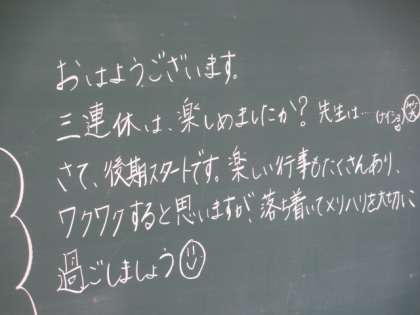 おはようございます。
三連休は、楽しめましたか?先生は…
さて、後期スタートです。楽しい行事もたくさんあり、
ワクワクすると思いますが、落ち着いてメリハリを大切に、
過ごしましょう